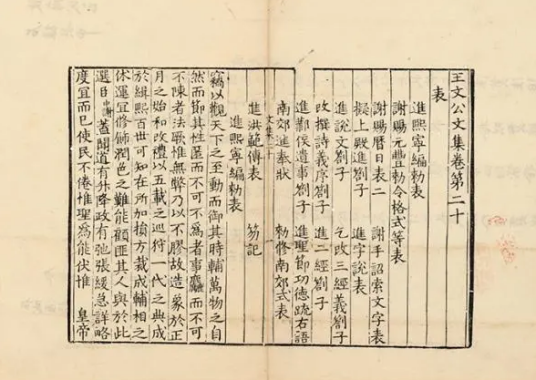 王文公文集卷第二十
表
進熙寧編勑表
謝賜元豐勑令格式等表
謝賜曆日表二 謝手詔索文字表
擬上殿進劄子 進字說表
進說文劄子 乞改三經義劄子
改撰詩義序劄子 進二經劄子
進鄴侯遺事劄子 進聖節功德疏右語
南郊進奉狀 勑修南郊式表
進洪範傳表 笏記
進熙寧編勑表
竊以觀天下之至動而御其時輔萬物之自
然而節其性匿而不可不為者事麤而不可
不陳者法歌惟無弊乃以不膠故造象於正
月之始和改禮以五載之巡狩一代之典成
於緝熙百世可知在所加損方裁成輔相之
休運宜脩飾潤色之難能顧匪其人與於此
選中謝蓋聞道有升降政有弛張緩急詳略
度宜而已使民不倦惟聖為能伏惟 皇帝